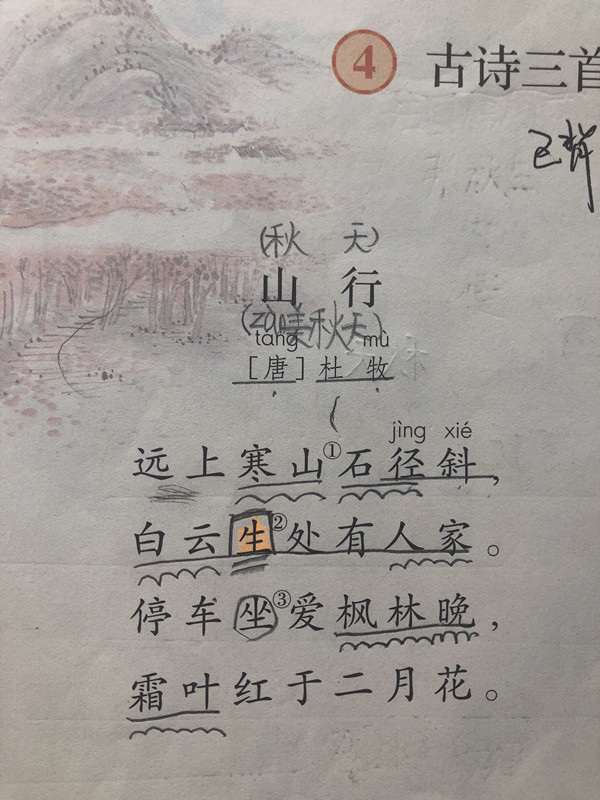 4 古诗三首
已背
(秋 天)
山 行
(zàn美秋天)
táng mù
[唐] 杜 牧
jìng xié
远上寒山①石径斜，
白云生②处有人家。
停车坐③爱枫林晚，
霜叶红于二月花。